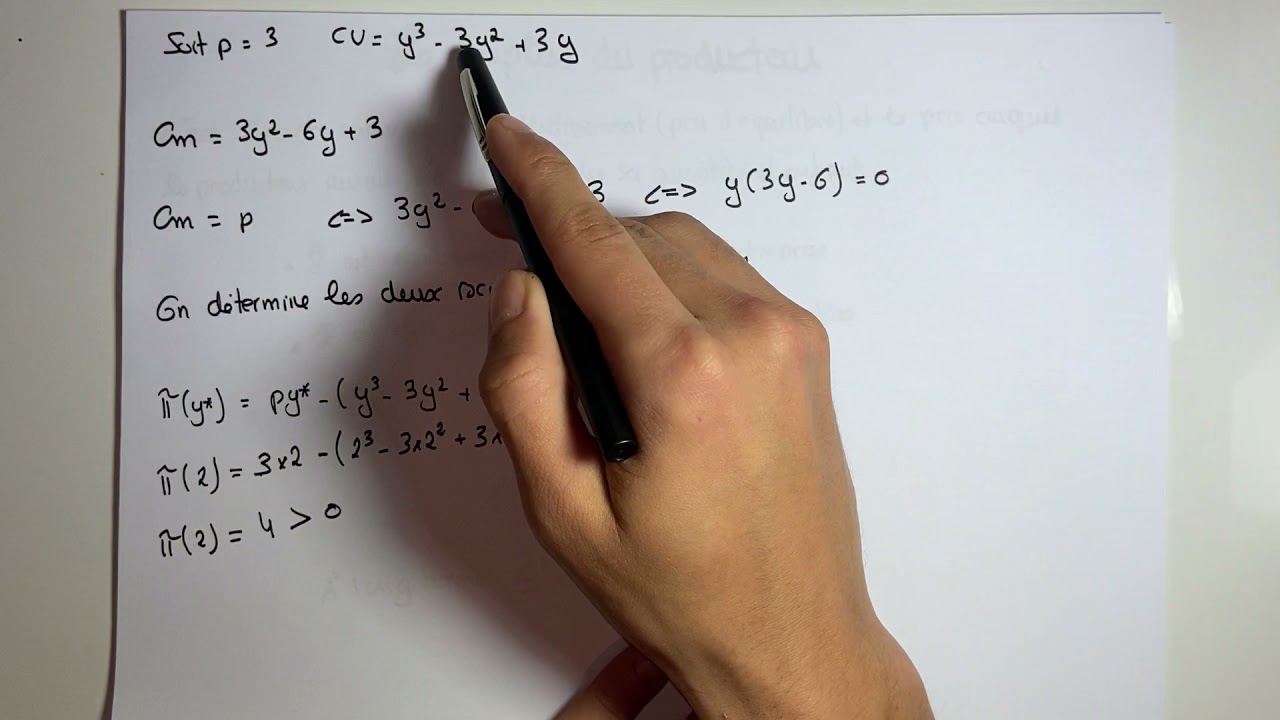 Soit p = 3 CV = y³ - 3y² + 3y
Cm = 3y² - 6y + 3
Cm = p <=> 3y² - 3 <=> y(3y - 6) = 0
On détermine les deux
π(y*) = py* - (y³ - 3y² +
π(2) = 3×2 - (2³ - 3×2² + 3×
π(2) = 4 > 0